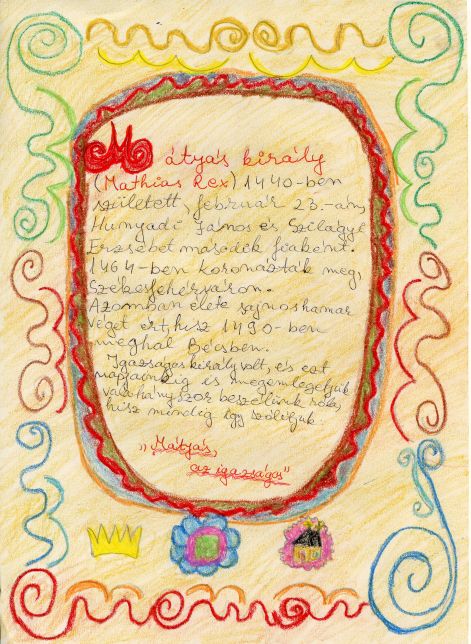 Mátyás király
(Mathias Rex) 1440-ben
született, február 23.-án,
Hunyadi János és Szilágyi
Erzsébet második fiaként.
1464-ben koronázták meg,
Székesfehérváron.
Azomban élete sajnos hamar
véget ért, hisz 1490-ben
meghal Bécsben.
Igazságos király volt, és ezt
napjainkig is megemlegetjük
valahányszor beszélünk róla,
hisz mindig így szólítjuk:
„Mátyás,
az igazságos"